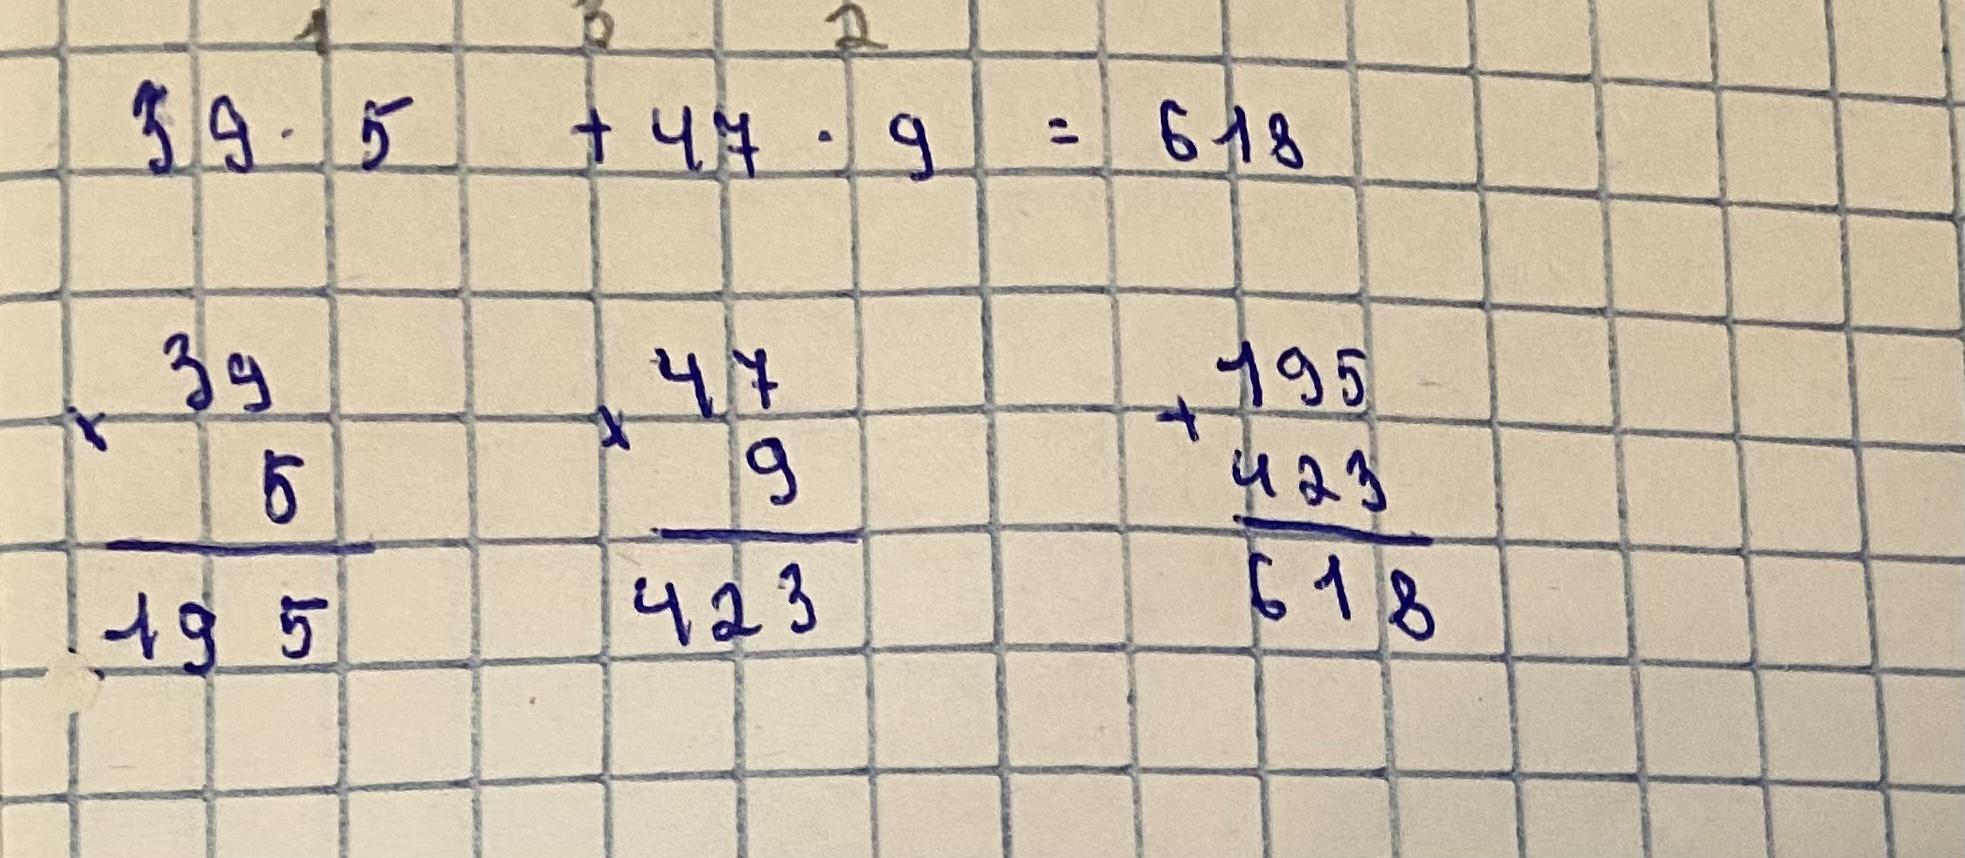 1 3 2
39 · 5 + 47 · 9 = 618
39 47 195
× × +
5 9 423
195 423 618